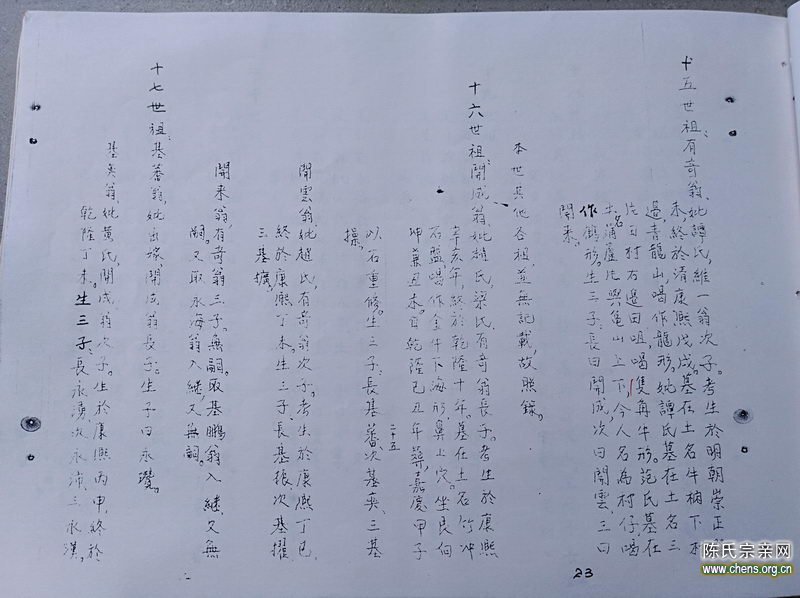 十五世祖：有奇翁，妣譚氏，維一翁次子。考生於明朝崇正
未，終於清康熙戊戌。墓在土名牛欄下本
邊青龍山，喝作龍形。妣譚氏墓在土名三
村右邊田咀，喝隻角牛形。范氏墓在
土名蒲蘆圯與亀山上下，今人名為村仔，喝
作鶴形。生三子：長曰開成，次曰開雲，三曰
開来。
本世其他各祖，並無記載，故照錄。
十六世祖：開成翁，妣趙氏，梁氏，有奇翁長子。考生於康熙
辛亥年，終於乾隆十年。墓在土名竹冲
石盤，喝作金牛下海形鼻上穴。坐艮向
坤兼丑未。百乾隆己丑年葬，嘉慶甲子
以石重修。生三子：長基蕃，次基英，三基
操。
二十五
開雲翁，妣趙氏，有奇翁次子。考生於康熙丁巳，
終於康熙丁未。生三子：長基振，次基擢，
三基擴。
開来翁，有奇翁三子。無嗣。取基鵬翁入継，又無
嗣。又取永海翁入継，又無嗣。
十七世祖：基蕃翁，妣出嫁，開成翁長子。生子曰永瓚。
基英翁，妣黄氏，開成翁次子。生於康熙丙申，終於
乾隆丁未。生三子：長永漬，次永沛，三永漢。
23
陈氏宗亲网
www.chens.org.cn